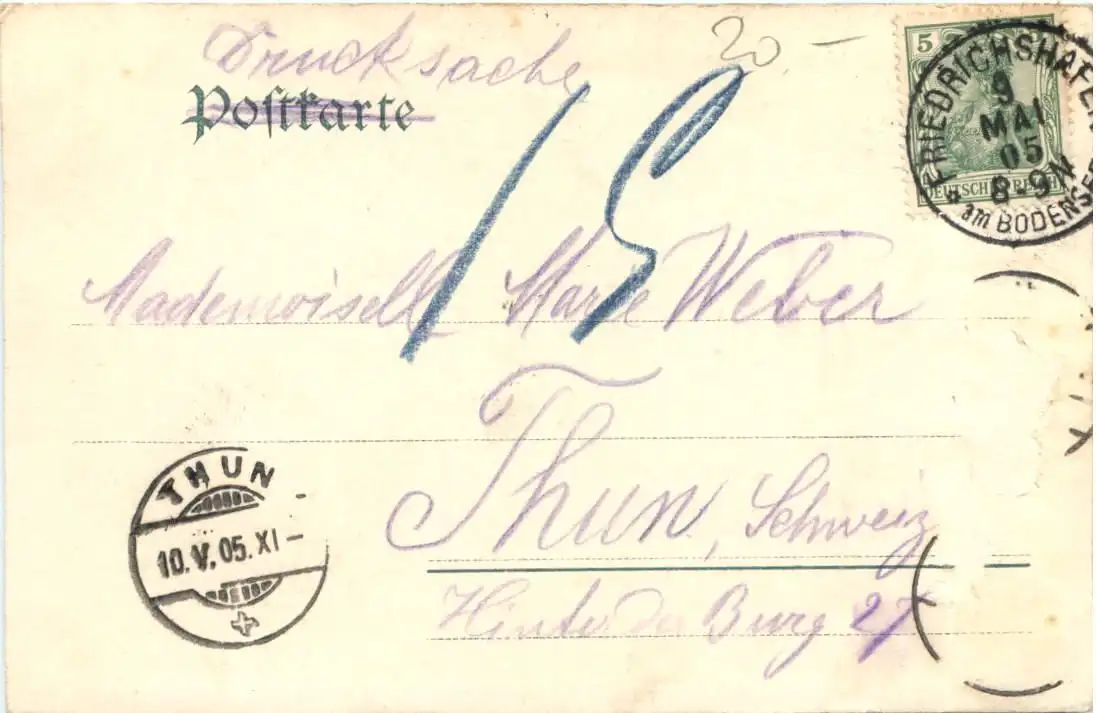 20.-
Drucksache
Postkarte
15
5
DEUTSCHES REICH
FRIEDRICHSHAFEN
9
MAI
05
8-9N
* am BODENSEE
Mademoiselle Marie Weber
Thun, Schweiz
Hinter der Burg 27
THUN
10.V.05.XI-